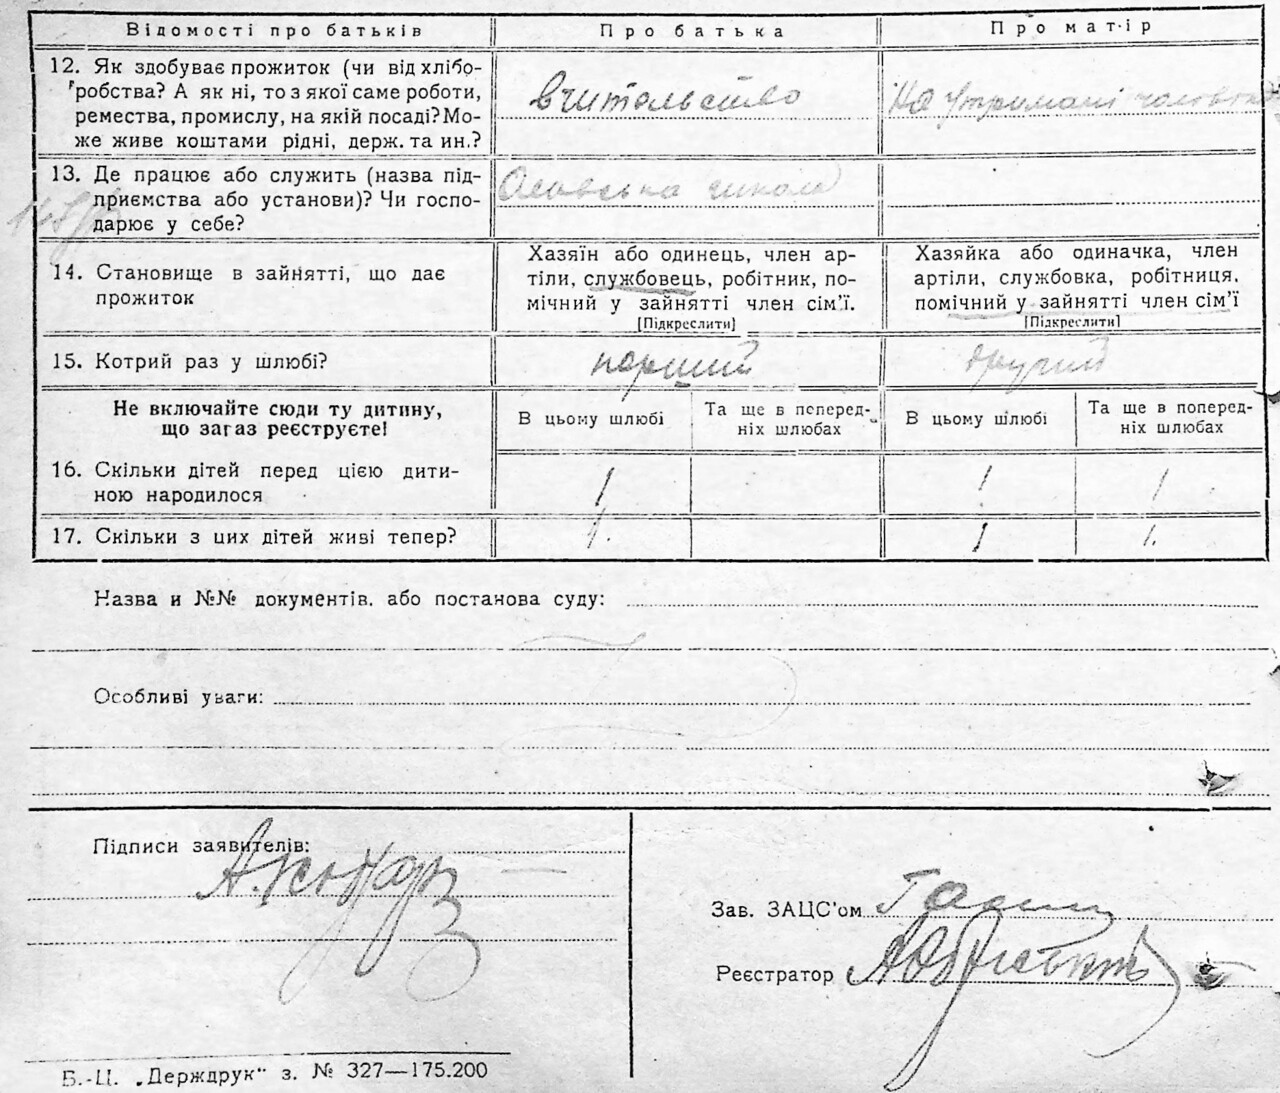 Відомості про батьків
Про батька
Про матір
12. Як здобуває прожиток (чи від хлібо-
робства? А як ні, то з якої саме роботи,
ремества, промислу, на якій посаді? Мо-
же живе коштами рідні, держ. та ин.?
вчительство
На утримані чоловіка
13. Де працює або служить (назва під-
приємства або установи)? Чи госпо-
дарює у себе?
школа
14. Становище в зайнятті, що дає
прожиток
Хазяїн або одинець, член ар-
тіли, службовець, робітник, по-
мічний у зайнятті член сім'ї.
[Підкреслити]
Хазяйка або одиначка, член
артіли, службовка, робітниця,
помічний у зайнятті член сім'ї
[Підкреслити]
15. Котрий раз у шлюбі?
перший
другий
Не включайте сюди ту дитину,
що загаз реєструєте!
В цьому шлюбі
Та ще в поперед-
ніх шлюбах
В цьому шлюбі
Та ще в поперед-
ніх шлюбах
16. Скільки дітей перед цією дити-
ною народилося
1
1
1
17. Скільки з цих дітей живі тепер?
1.
1
1.
Назва и №№ документів, або постанова суду:
Особливі уваги:
Підписи заявителів:
Зав. ЗАЦС'ом
Реєстратор
Б.-Ц. „Держдрук" з. № 327—175.200